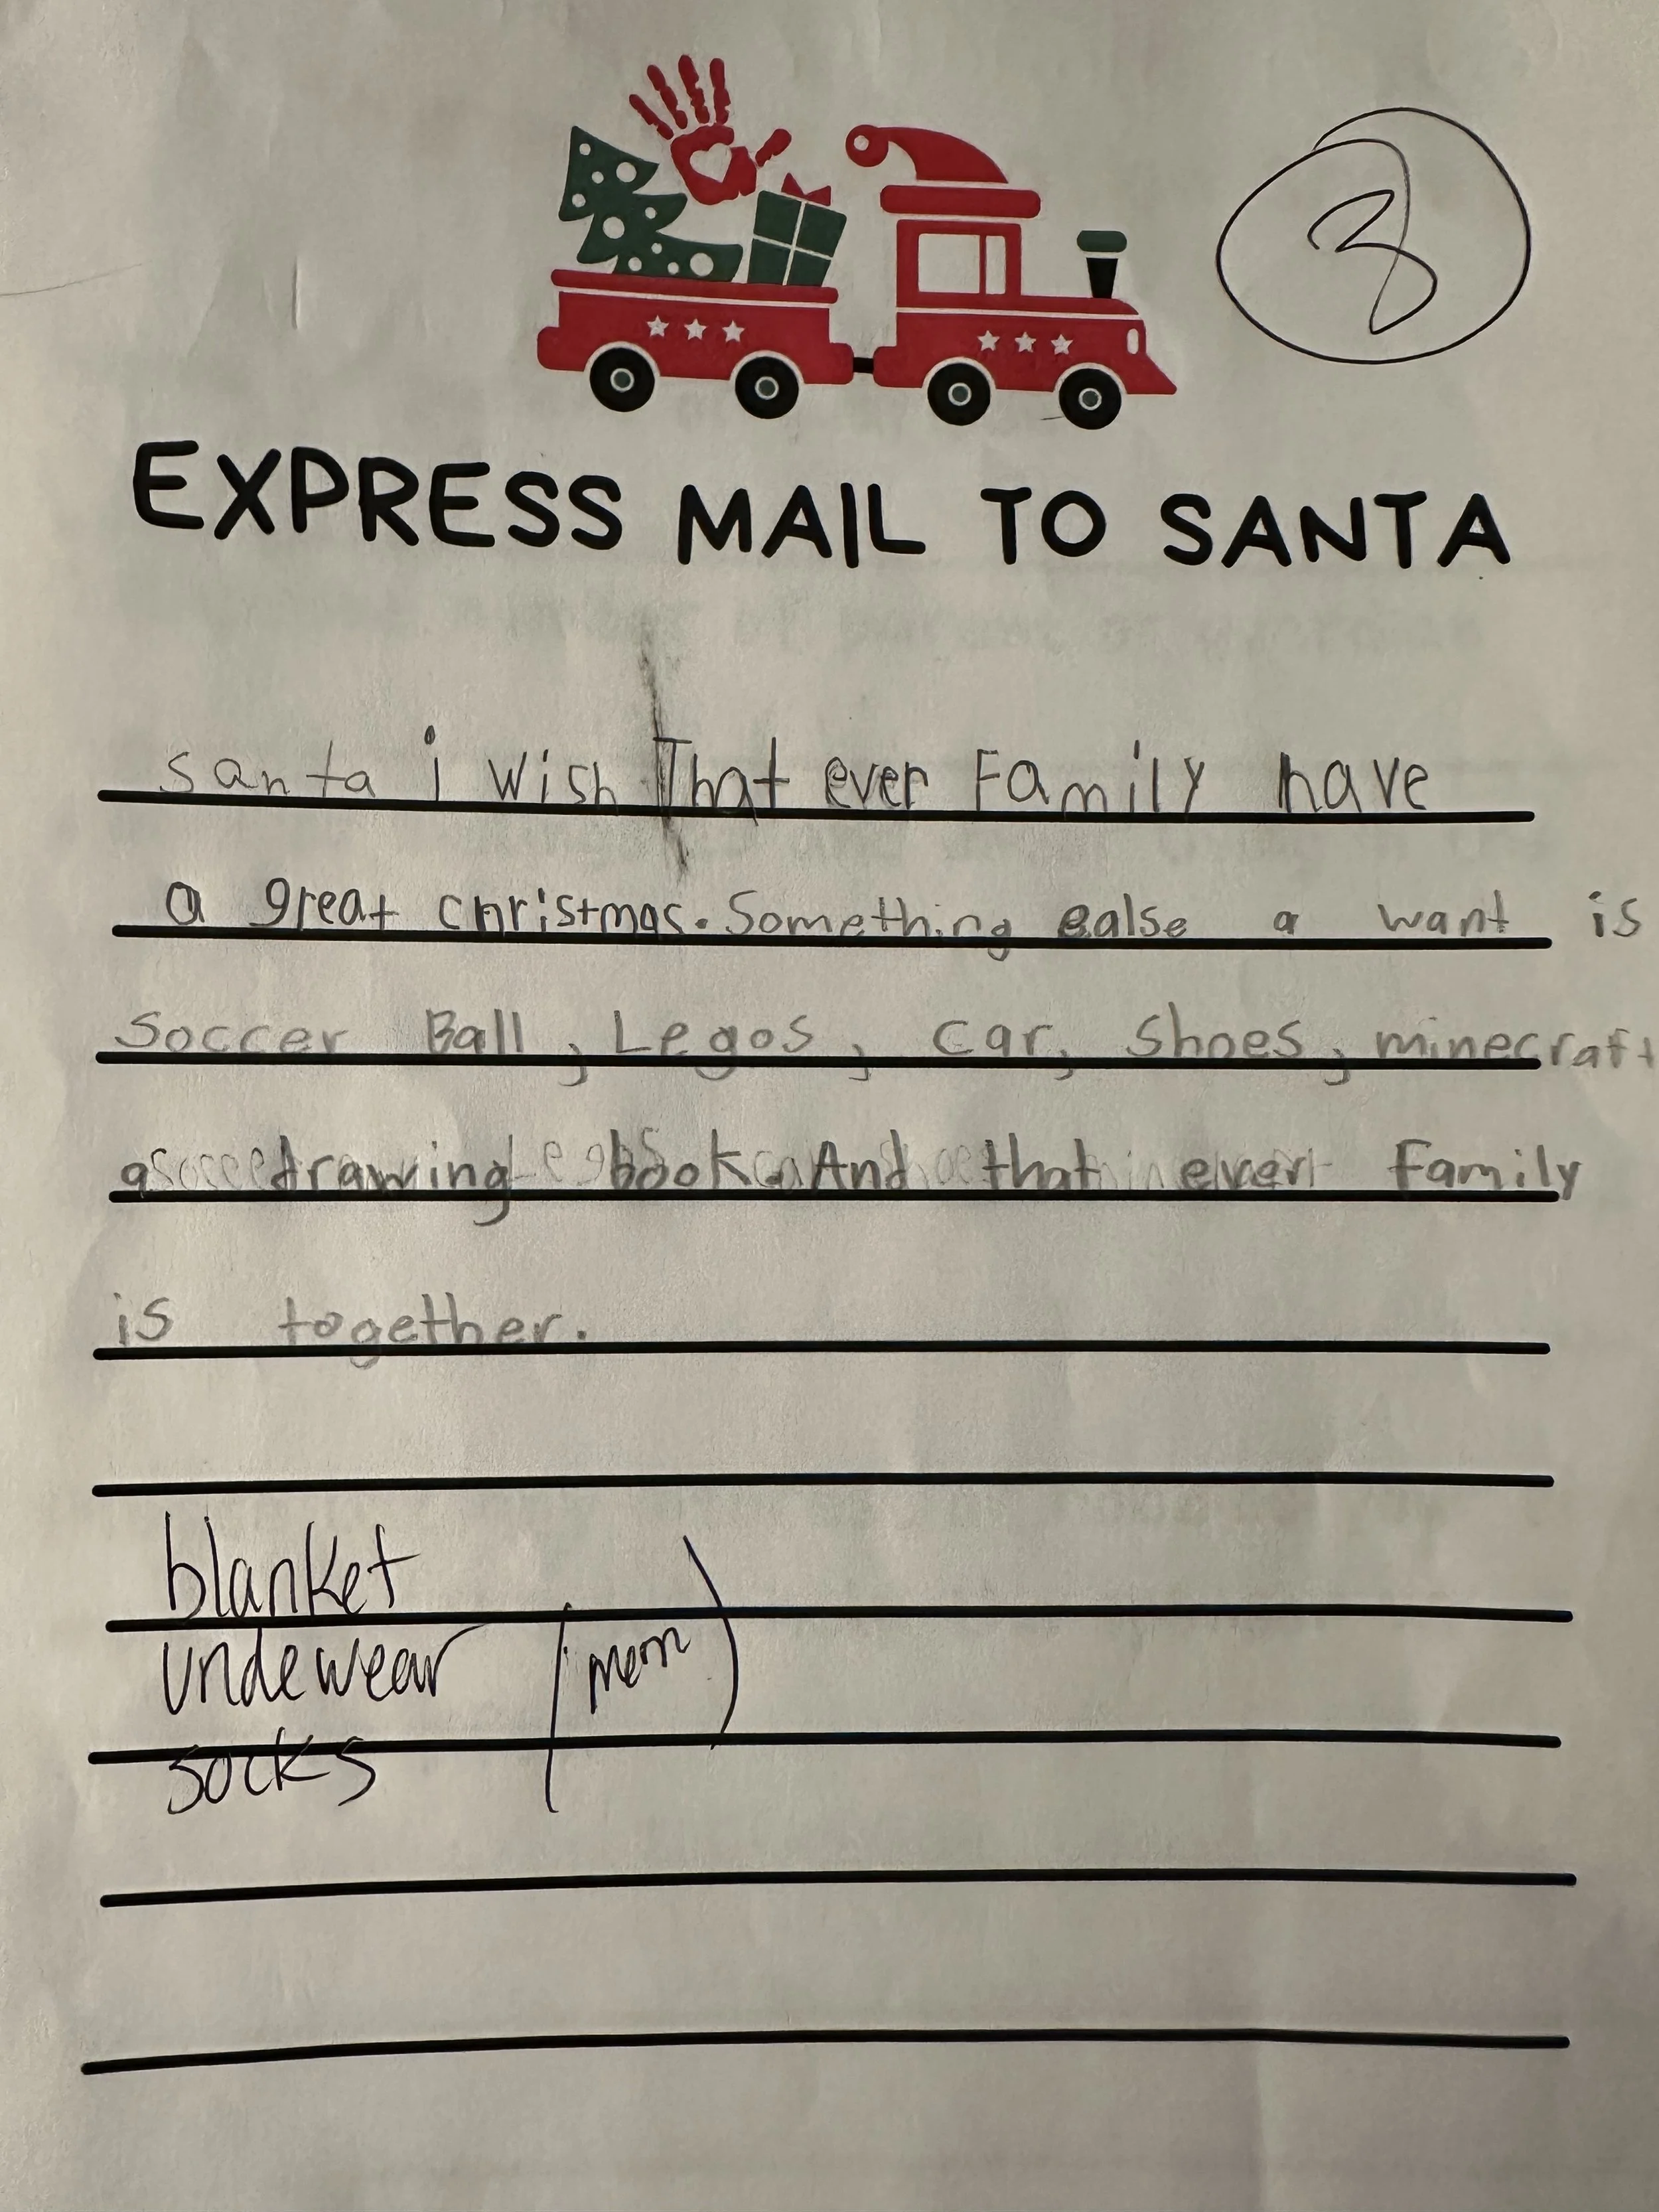 3
EXPRESS MAIL TO SANTA
santa i wish That ever Family have
a great christmas. Something ealse a want is
Soccer Ball, Legos, car, shoes, minecraft
a drawing book. And that ever family
is together.
blanket
undewear (mom)
socks